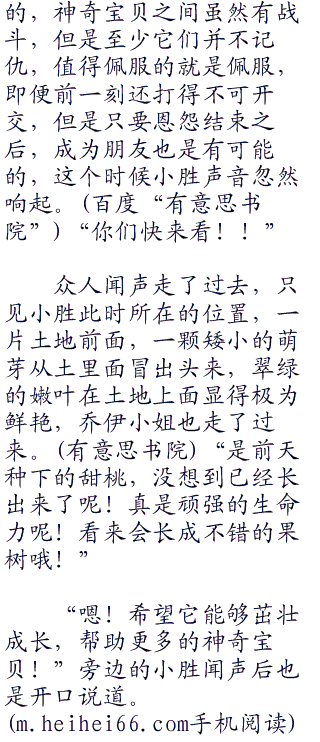 的，神奇宝贝之间虽然有战
斗，但是至少它们并不记
仇，值得佩服的就是佩服，
即便前一刻还打得不可开
交，但是只要恩怨结束之
后，成为朋友也是有可能
的，这个时候小胜声音忽然
响起。(百度“有意思书
院”)“你们快来看！！”
众人闻声走了过去，只
见小胜此时所在的位置，一
片土地前面，一颗矮小的萌
芽从土里面冒出头来，翠绿
的嫩叶在土地上面显得极为
鲜艳，乔伊小姐也走了过
来。(有意思书院)“是前天
种下的甜桃，没想到已经长
出来了呢！真是顽强的生命
力呢！看来会长成不错的果
树哦！”
“嗯！希望它能够茁壮
成长，帮助更多的神奇宝
贝！”旁边的小胜闻声后也
是开口说道。
(m.heihei66.com手机阅读)